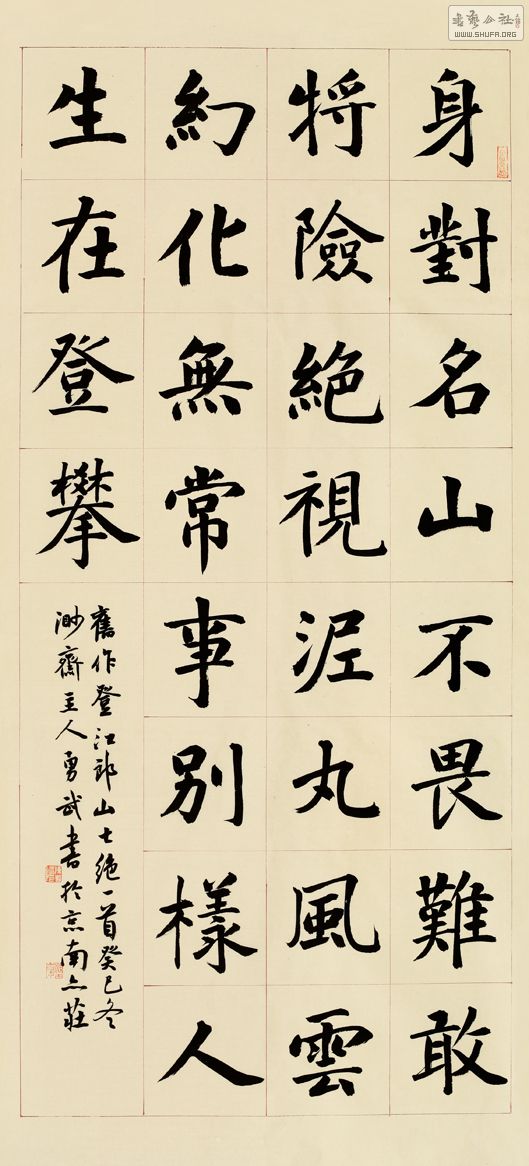 書藝公社
WWW.SHUFA.ORG
身對名山不畏難敢
将險絕視泥丸風雲
幻化無常事別樣人
生在登攀
舊作登江郎山七絕一首癸巳冬
渺齋主人勇武書於京南亦莊